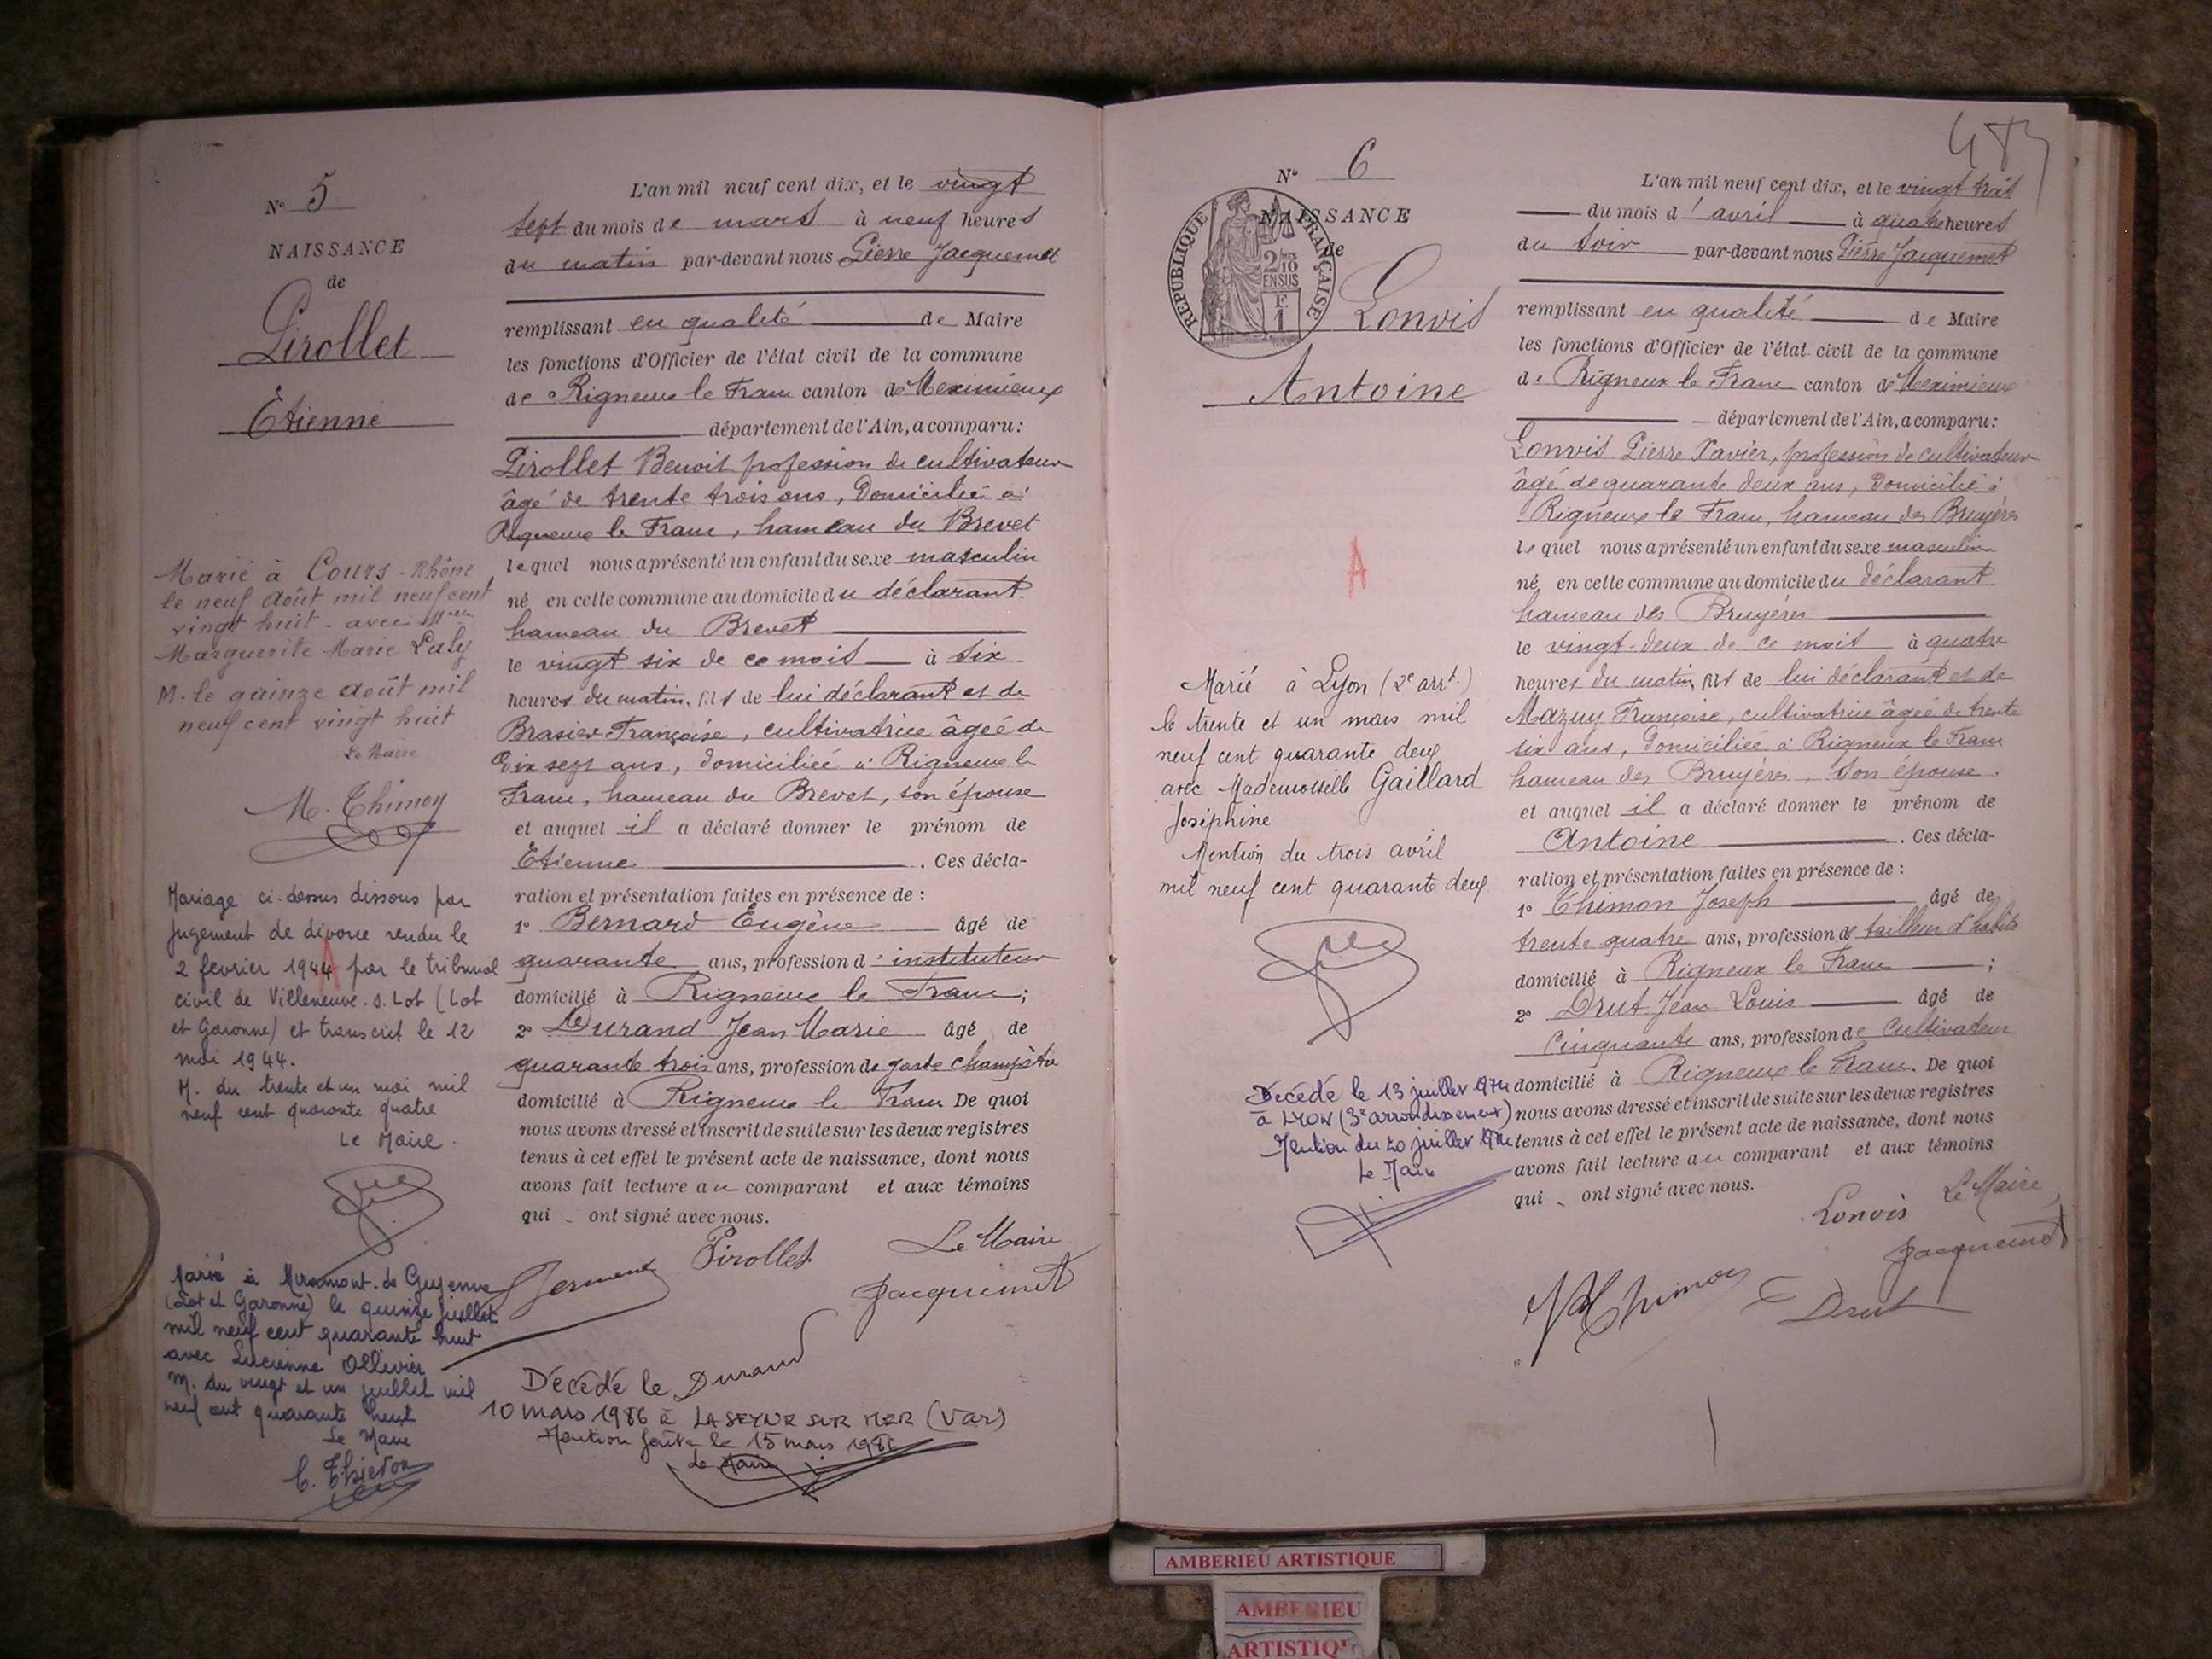 N° 5
NAISSANCE
de
Pirollet
Etienne
Marié à Cours - Rhône
le neuf Août mil neuf cent
vingt huit - avec Melle
Marguerite Marie Laly
M. le quinze août mil
neuf cent vingt huit
Le Maire
M. Thimon
Mariage ci-dessus dissous par
jugement de divorce rendu le
2 fevrier 1944 par le tribunal
civil de Villeneuve-s. Lot (Lot
et Garonne) et transcrit le 12
mai 1944.
M. du trente et un mai mil
neuf cent quarante quatre
Le Maire.
Marié à Miramont-de Guyenne
(Lot et Garonne) le quinze juillet
mil neuf cent quarante huit
avec Lucienne Ollivier
M. du vingt et un juillet mil
neuf cent quarante huit
Le Maire
L'an mil neuf cent dix, et le vingt
sept du mois de mars à neuf heures
du matin par-devant nous Pierre Jacquemet
remplissant en qualité de Maire
les fonctions d'Officier de l'état civil de la commune
de Rigneux le Franc canton de Meximieux
département de l'Ain, a comparu :
Pirollet Benoit profession de cultivateur
âgé de trente trois ans, domicilié à
Rigneux le Franc, hameau du Brevet
lequel nous a présenté un enfant du sexe masculin
né en cette commune au domicile du déclarant
hameau du Brevet
le vingt six de ce mois à six
heures du matin, fils de lui déclarant et de
Brasier Françoise, cultivatrice âgée de
dix sept ans, domiciliée à Rigneux le
Franc, hameau du Brevet, son épouse
et auquel il a déclaré donner le prénom de
Etienne. Ces décla-
ration et présentation faites en présence de :
1° Bernard Eugène âgé de
quarante ans, profession d'instituteur
domicilié à Rigneux le Franc ;
2° Durand Jean Marie âgé de
quarante trois ans, profession de garde champêtre
domicilié à Rigneux le Franc De quoi
nous avons dressé et inscrit de suite sur les deux registres
tenus à cet effet le présent acte de naissance, dont nous
avons fait lecture au comparant et aux témoins
qui ont signé avec nous.
Pirollet Le Maire
Jacquemet
Durand
Décédé le
10 mars 1986 à LA SEYNE SUR MER (Var)
Mention faite le 15 mars 1986
Le Maire
483
N° 6
NAISSANCE
de
RÉPUBLIQUE FRANÇAISE
2/10
EN SUS
F.
1
Lonvis
Antoine
A
Marié à Lyon (2e arrt.)
le trente et un mars mil
neuf cent quarante deux
avec Mademoiselle Gaillard
Joséphine
Mention du trois avril
mil neuf cent quarante deux
Décédé le 13 juillet 1974
à LYON (3e arrondissement)
Mention du 20 juillet 1974
Le Maire
L'an mil neuf cent dix, et le vingt trois
du mois d'avril à quatre heures
du soir par-devant nous Pierre Jacquemet
remplissant en qualité de Maire
les fonctions d'Officier de l'état civil de la commune
de Rigneux le Franc canton de Meximieux
département de l'Ain, a comparu :
Lonvis Pierre Xavier, profession de cultivateur
âgé de quarante deux ans, domicilié à
Rigneux le Franc, hameau des Bruyères
lequel nous a présenté un enfant du sexe masculin
né en cette commune au domicile du déclarant
hameau des Bruyères
le vingt-deux de ce mois à quatre
heures du matin, fils de lui déclarant et de
Mazuy Françoise, cultivatrice âgée de trente
six ans, domiciliée à Rigneux le Franc
hameau des Bruyères, son épouse.
et auquel il a déclaré donner le prénom de
Antoine. Ces décla-
ration et présentation faites en présence de :
1° Thimon Joseph âgé de
trente quatre ans, profession de tailleur d'habits
domicilié à Rigneux le Franc ;
2° Drut Jean Louis âgé de
Cinquante ans, profession de Cultivateur
domicilié à Rigneux le Franc. De quoi
nous avons dressé et inscrit de suite sur les deux registres
tenus à cet effet le présent acte de naissance, dont nous
avons fait lecture au comparant et aux témoins
qui ont signé avec nous.
Lonvis Le Maire
Jacquemet
Thimon Drut
AMBERIEU ARTISTIQUE
AMBERIEU
ARTISTIQU